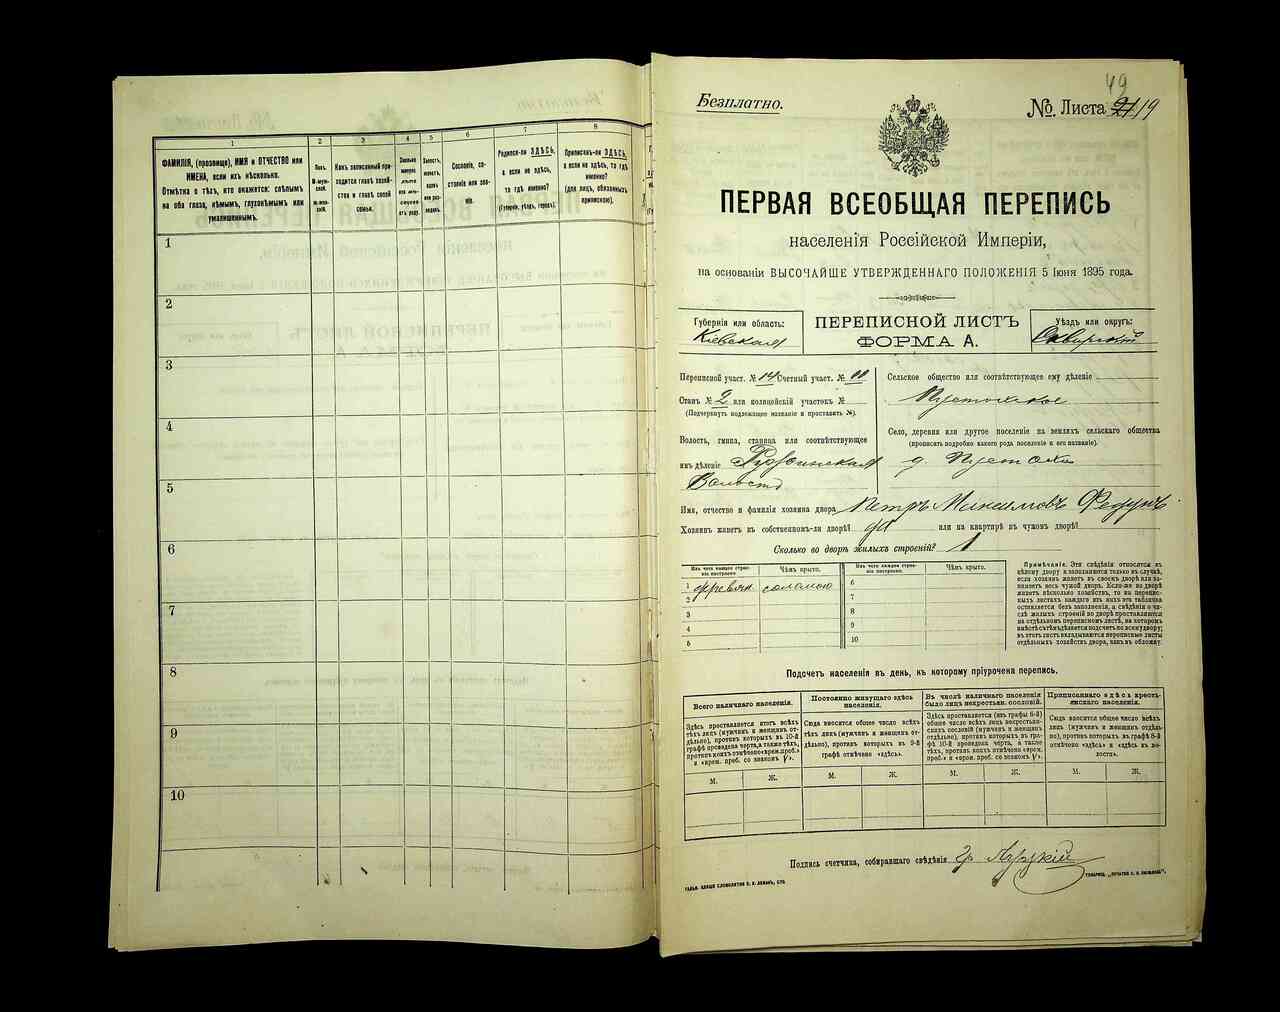 1
2
3
4
5
6
7
8
ФАМИЛІЯ, (прозвище), ИМЯ и ОТЧЕСТВО или
ИМЕНА, если ихъ нѣсколько.
Отмѣтка о тѣхъ, кто окажется: слѣпымъ
на оба глаза, нѣмымъ, глухонѣмымъ или
умалишеннымъ.
Полъ.
М-муж-
ской.
Ж-жен-
скій.
Какъ записанный при-
ходится главѣ хозяй-
ства и главѣ своей
семьи.
Сословіе, со-
стояніе или зва-
ніе.
Родился-ли ЗДѢСЬ,
а если не здѣсь,
то гдѣ именно?
(Губернія, уѣздъ, городъ).
Приписанъ-ли ЗДѢСЬ,
а если не здѣсь, то гдѣ
именно?
(для лицъ, обязанныхъ
припискою).
1
2
3
4
5
6
7
8
9
10
49
Безплатно.
№ Листа 21 19
ПЕРВАЯ ВСЕОБЩАЯ ПЕРЕПИСЬ
населенія Россійской Имперіи,
на основаніи ВЫСОЧАЙШЕ УТВЕРЖДЕННАГО ПОЛОЖЕНІЯ 5 Іюня 1895 года.
Губернія или область:
Кіевская
ПЕРЕПИСНОЙ ЛИСТЪ
ФОРМА А.
Уѣздъ или округъ:
Сквирскій
Переписной участ. № 14 Счетный участ. № 11
Станъ № 2 или полицейскій участокъ №
(Подчеркнуть подлежащее названіе и проставить №).
Волость, гмина, станица или соотвѣтствующее
имъ дѣленіе
Волость
Сельское общество или соотвѣтствующее ему дѣленіе
Село, деревня или другое поселеніе на земляхъ сельскаго общества
(прописать подробно какого рода поселеніе и его названіе).
д.
Имя, отчество и фамилія хозяина двора Петръ Максимовъ Федунъ
Хозяинъ живетъ въ собственномъ-ли дворѣ? да или на квартирѣ въ чужомъ дворѣ?
Сколько во дворѣ жилыхъ строеній? 1
Изъ чего каждое строе-
ніе построено.
Чѣмъ крыто.
Изъ чего каждое строе-
ніе построено.
Чѣмъ крыто.
1 дерев'ян соломою
2
3
4
5
6
7
8
9
10
Примѣчаніе. Эти свѣдѣнія относятся къ
цѣлому двору и заполняются только въ случаѣ,
если хозяинъ живетъ въ своемъ дворѣ или за-
нимаетъ весь чужой дворъ. Если-же во дворѣ
живетъ нѣсколько хозяйствъ, то на перепис-
ныхъ листахъ каждаго изъ нихъ эта табличка
оставляется безъ заполненія, а свѣдѣнія о чи-
слѣ жилыхъ строеній во дворѣ проставляются
на отдѣльномъ переписномъ листѣ, на которомъ
вмѣстѣ съ тѣмъ дѣлается подсчетъ по всему двору;
въ этотъ листъ вкладываются переписные листы
отдѣльныхъ хозяйствъ двора, какъ въ обложку.
Подсчетъ населенія въ день, къ которому пріурочена перепись.
Всего наличнаго населенія.
Постоянно живущаго здѣсь
населенія.
Въ числѣ наличнаго населенія
было лицъ некрестьян. сословій.
Приписаннаго здѣсь кресть-
янскаго населенія.
Здѣсь проставляется итогъ всѣхъ
тѣхъ лицъ (мужчинъ и женщинъ от-
дѣльно), противъ которыхъ въ 10-й
графѣ проведена черта, а также тѣхъ,
противъ коихъ отмѣчено «врем. преб.»
и «врем. преб. со знакомъ V».
Сюда вносится общее число всѣхъ
тѣхъ лицъ (мужчинъ и женщинъ от-
дѣльно), противъ которыхъ въ 9-й
графѣ отмѣчено «здѣсь».
Здѣсь проставляется (изъ графы 6-й)
общее число всѣхъ лицъ некрестьян-
скихъ сословій (мужчинъ и женщинъ
отдѣльно), противъ которыхъ въ гра-
фѣ 10 проведена черта, а также
тѣхъ, противъ коихъ отмѣчено «врем.
преб.» и «врем. преб. со знакомъ V».
Сюда вносится общее число всѣхъ
тѣхъ лицъ (мужчинъ и женщинъ отдѣль-
но), противъ которыхъ въ графѣ 8-й
отмѣчено «здѣсь» и «здѣсь въ во-
лости».
М. Ж. М. Ж. М. Ж. М. Ж.
Подпись счетчика, собиравшаго свѣдѣнія